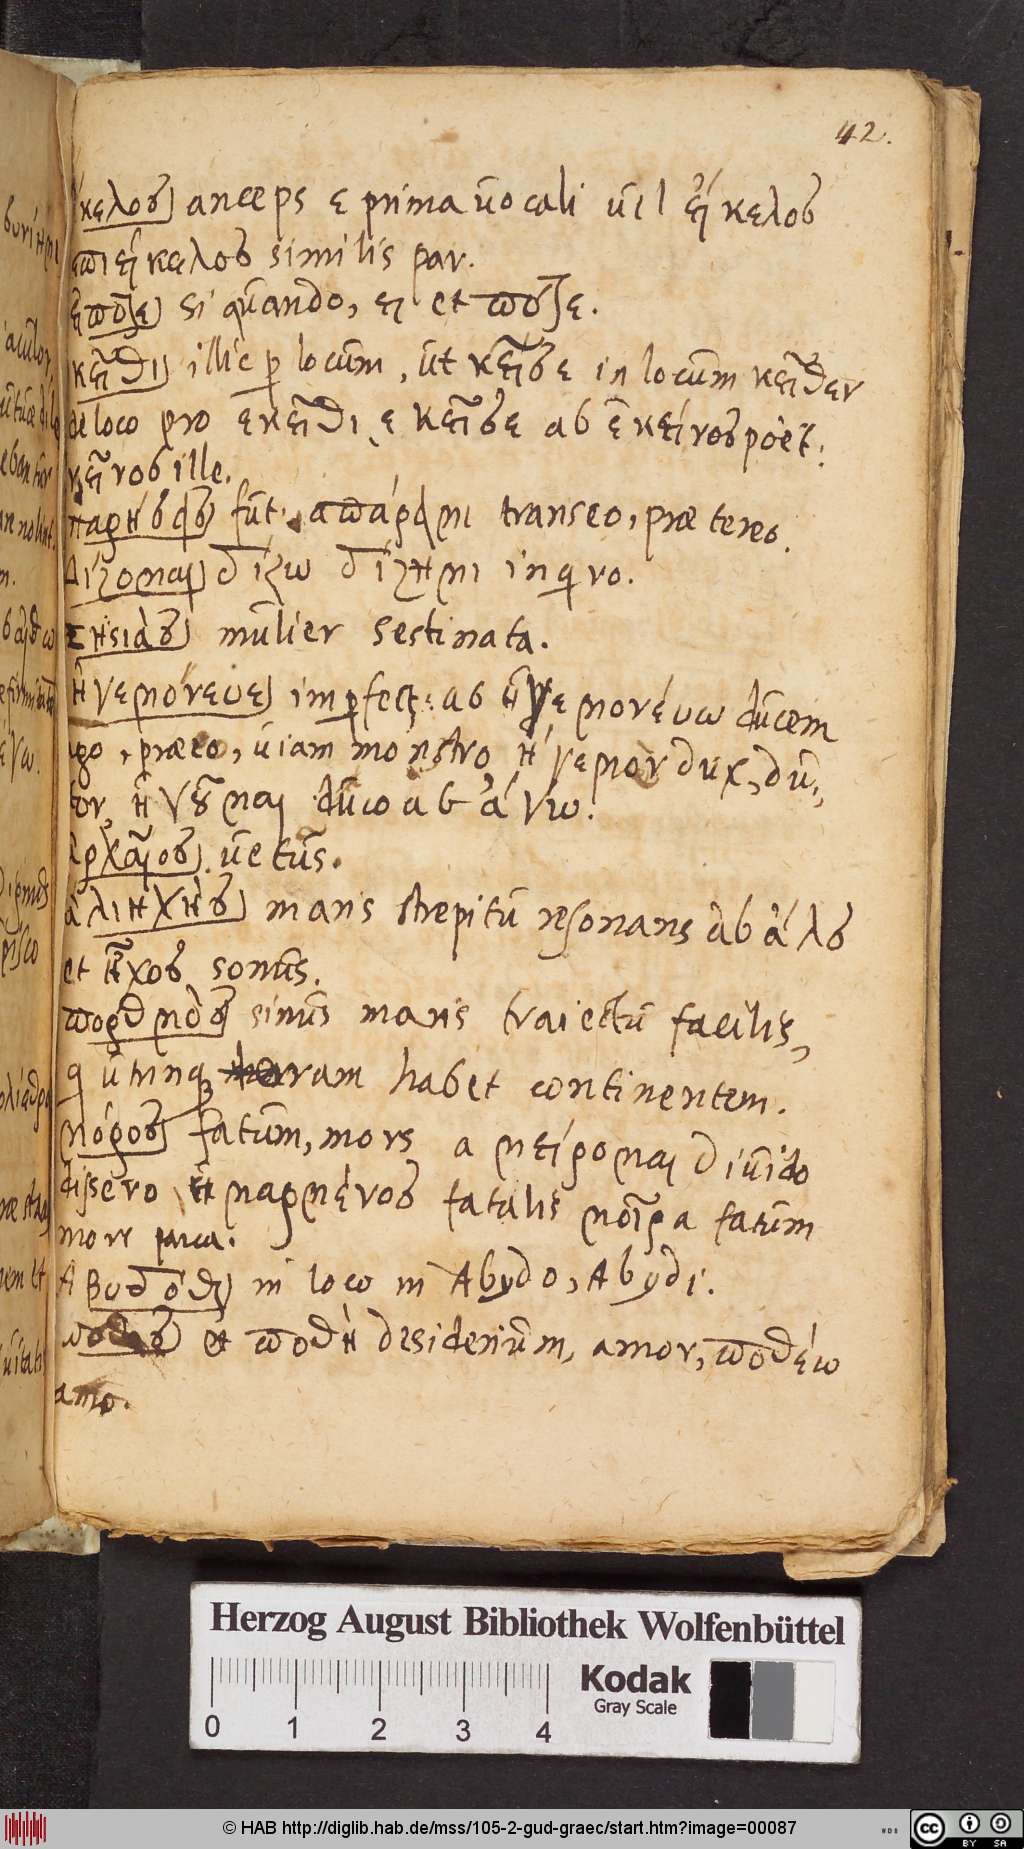 42.
ἴκελος) anceps ε prima vocali vel εἴκελος
επιείκελος similis par.
εἴποτε) si quando, ει et ποτε.
κεῖθι) illic per locum, ut κεῖσε in locum κεῖθεν
de loco pro εκεῖθι, εκεῖσε ab ἐκείνος poët:
κεῖνος ille.
fut. transeo, præ tereo.
Δίζομαι) δίζω δίζημι inquiro.
Σησιὰς) mulier Sestinata.
Ἡγεμόνευε) imperfect: ab ἡγεμονέυω ducem
ago, præeo, viam monstro ἡγεμον dux, duc-
tor, ἡγοῦμαι duco ab ἄγω.
ἀρχαῖος) vetus.
ἁλιηχὴς) maris strepitu resonans ab ἁλος
et ἦχος sonus.
πορθμὸς) sinus maris traiectu facilis,
q utrinque oram habet continentem.
μόρος) fatum, mors a μείρομαι divido
dissero εἱμαρμένος fatalis μοῖρα fatum
mors parca.
Ἀβυδόθι) in loco in Abydo, Abydi.
ποθος) et ποθὴ desiderium, amor, ποθέω
amo.
Herzog August Bibliothek Wolfenbüttel
Kodak
Gray Scale
0 1 2 3 4
© HAB http://diglib.hab.de/mss/105-2-gud-graec/start.htm?image=00087
WDB
cc BY SA